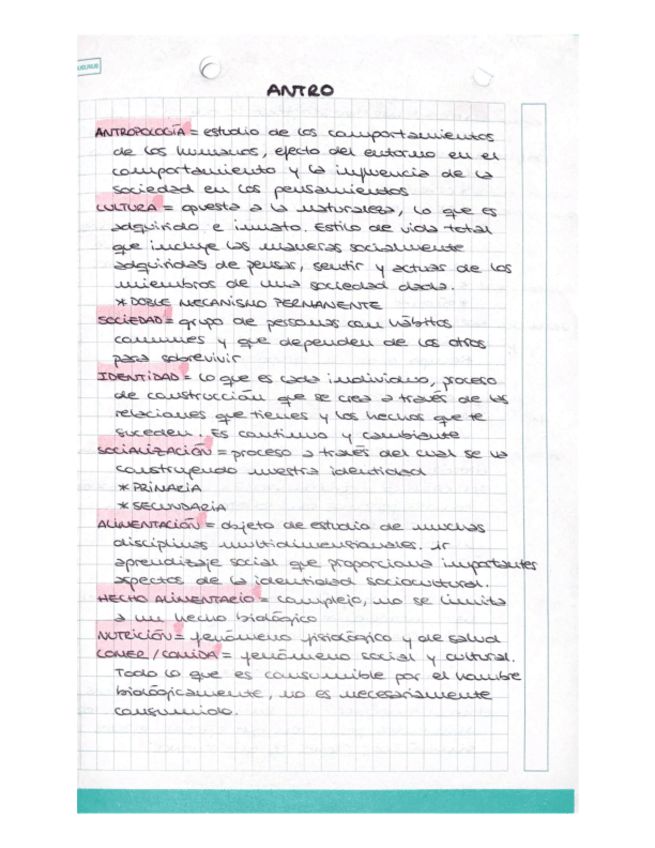 ANTRO
ANTROPOLOGÍA = estudio de los comportamientos
de los humanos, efecto del entorno en el
comportamiento y la influencia de la
sociedad en los pensamientos
CULTURA = opuesta a la naturaleza, lo que es
adquirido e innato. Estilo de vida total
que incluye las maneras socialmente
adquiridas de pensar, sentir y actuar de los
miembros de una sociedad dada.
* DOBLE MECANISMO PERMANENTE
SOCIEDAD = grupo de personas con hábitos
comunes y que dependen de los otros
para sobrevivir
IDENTIDAD = lo que es cada individuo, proceso
de construcción que se crea a través de las
relaciones que tienes y los hechos que te
suceden. Es continuo y cambiante
SOCIALIZACIÓN = proceso a través del cual se va
construyendo nuestra identidad
* PRIMARIA
* SECUNDARIA
ALIMENTACIÓN = objeto de estudio de muchas
disciplinas multidimensionales.
aprendizaje social que proporciona importantes
aspectos de la identidad sociocultural.
HECHO ALIMENTARIO = complejo, no se limita
a un hecho biológico
NUTRICIÓN = fenómeno fisiológico y de salud
COMER / COMIDA = fenómeno social y cultural.
Todo lo que es consumible por el hombre
biológicamente, no es necesariamente
consumido.